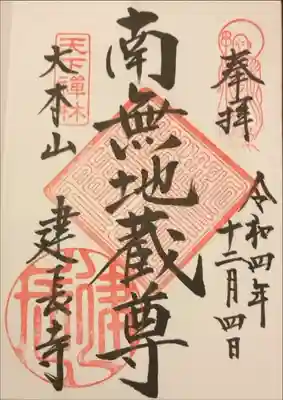 奉拝
令和四年
十二月四日
南無地蔵尊
天下禅林
大本山
建長寺